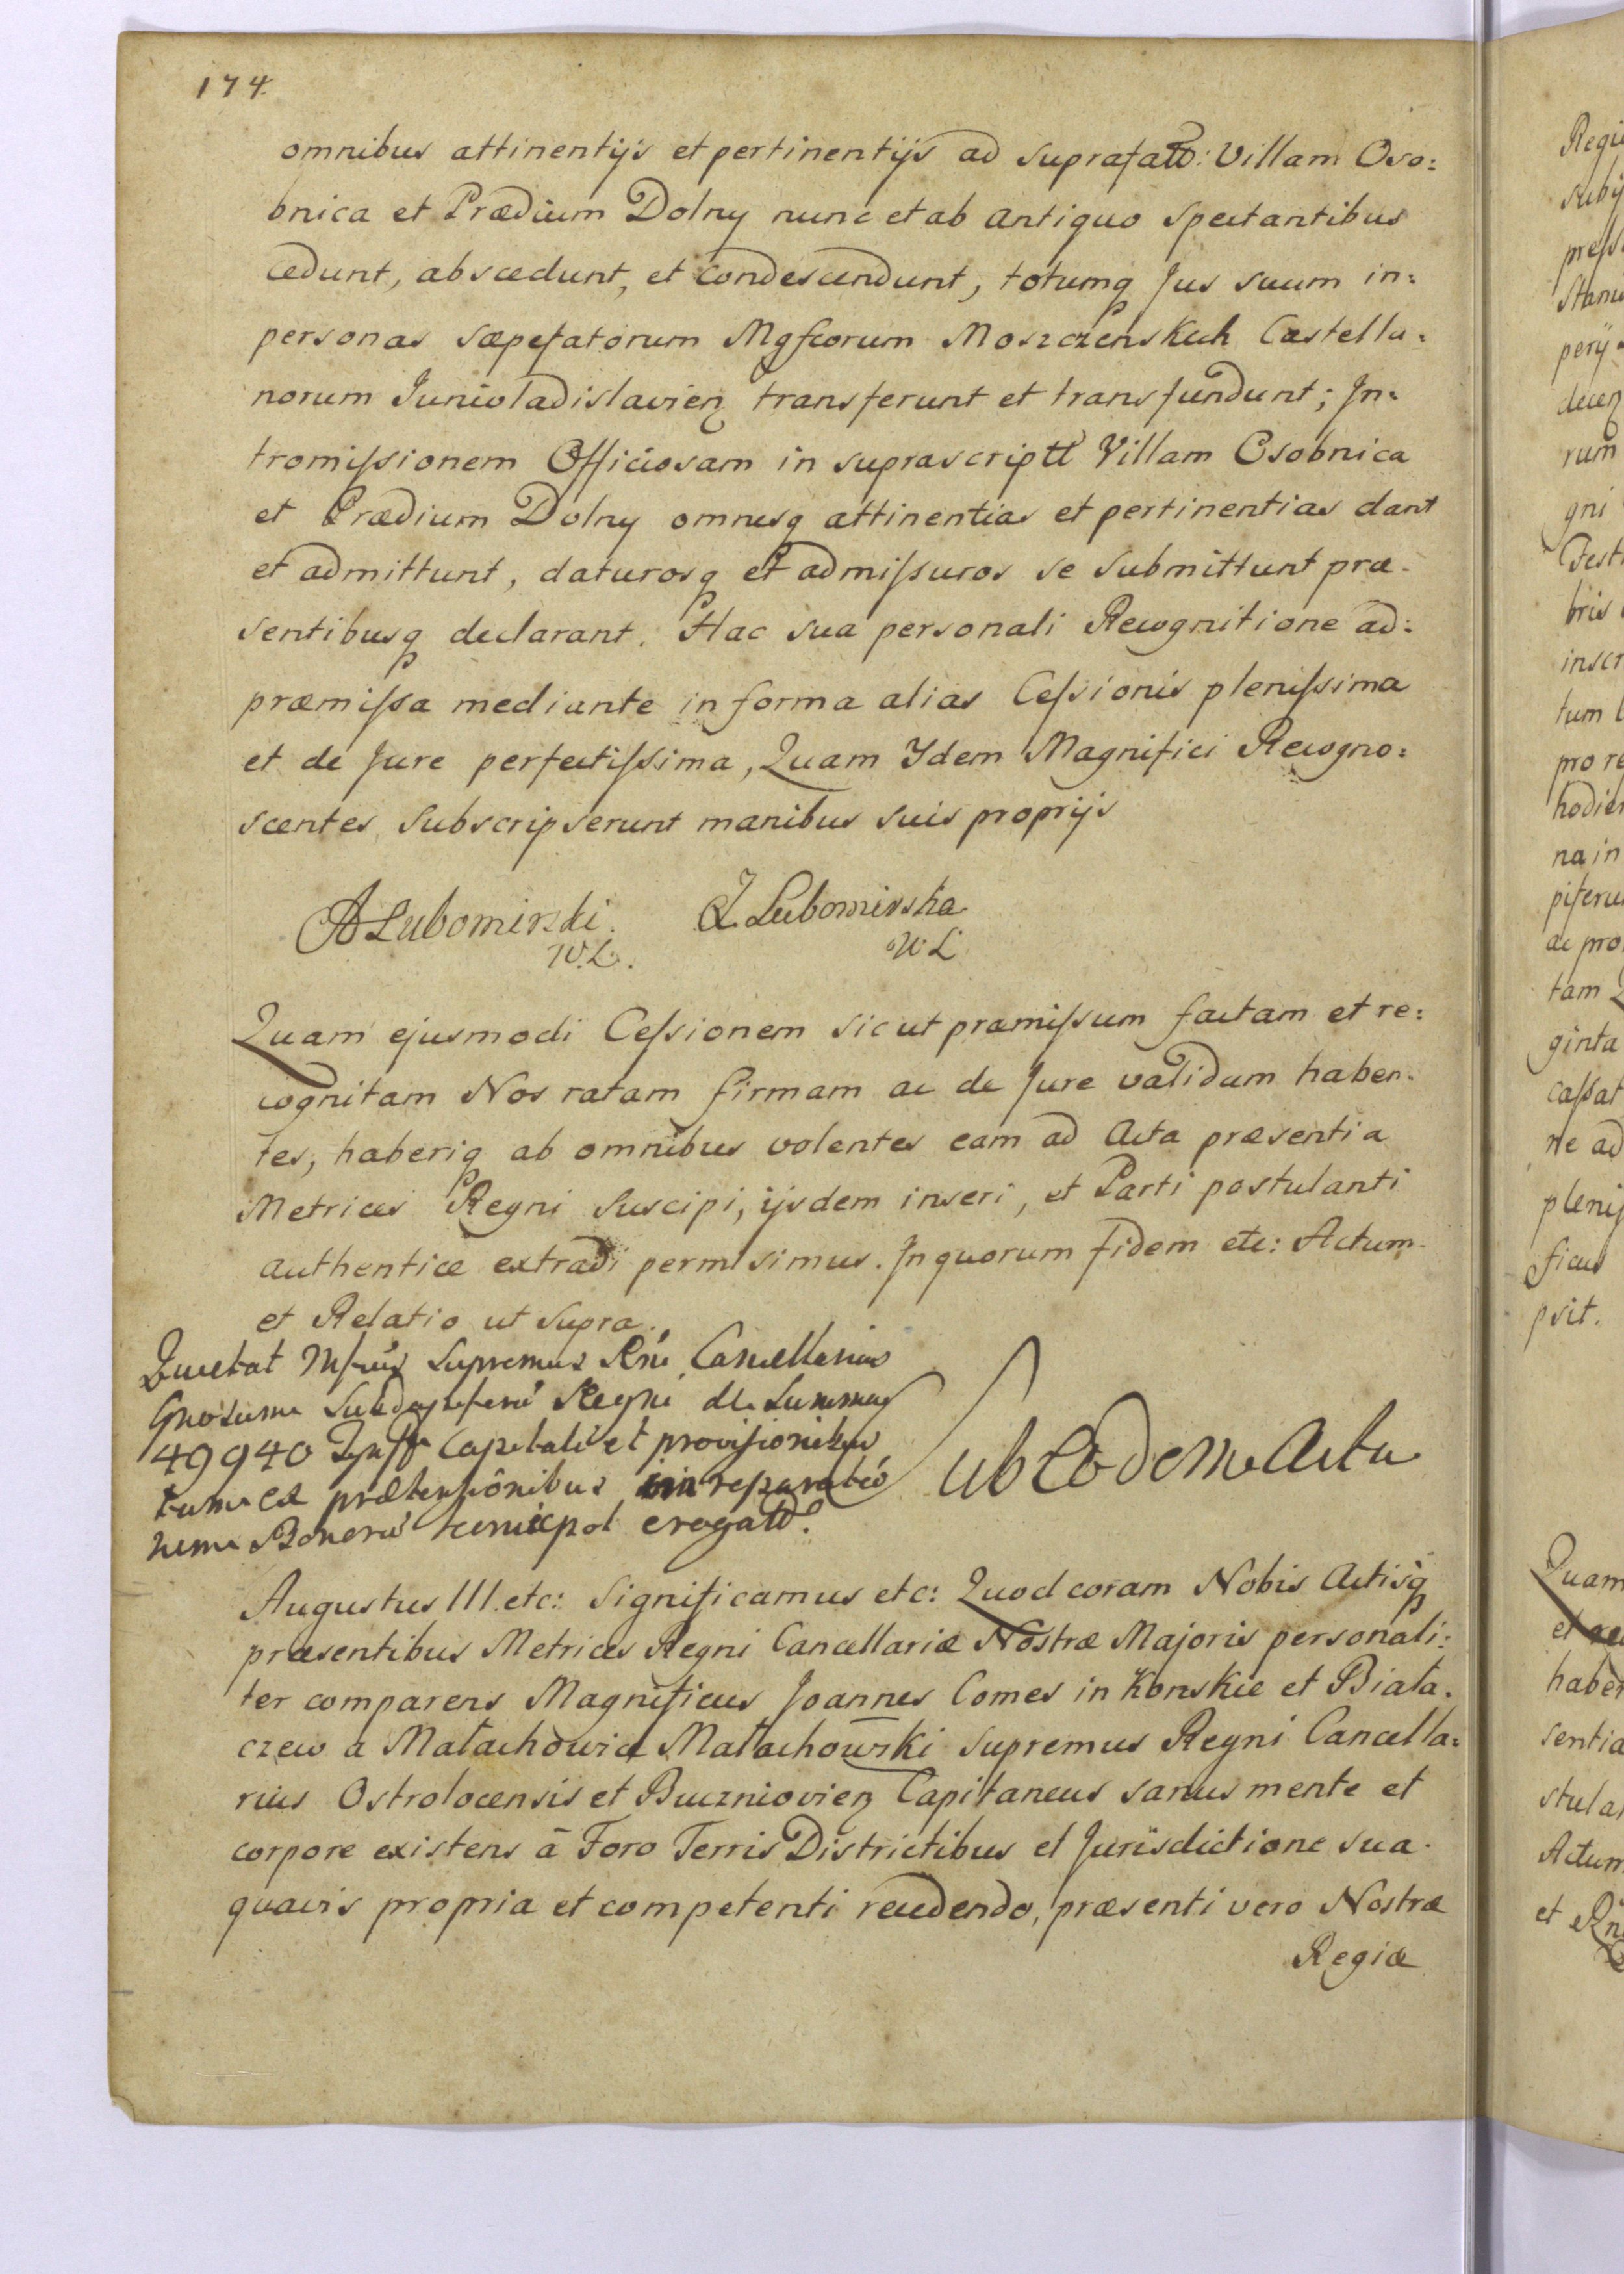 174.
omnibus attinentijs et pertinentijs ad suprafatt: Villam Oso:
bnica et Prædium Dolny nunc et ab antiquo spectantibus
cedunt, abscedunt, et condescendunt, totumq Jus suum in:
personas sæpefatorum Mgfcorum Moszczenskich Castella:
norum Junivladislavien transferunt et transfundunt; In:
tromissionem Officiosam in suprascriptt Villam Osobnica
et Prædium Dolny omnesq attinentias et pertinentias dant
et admittunt, daturosq et admissuros se submittunt præ-
sentibusq declarant. Hac sua personali Recognitione ad:
præmissa mediante in forma alias Cessionis plenissima
et de Jure perfectissima, Quam Ydem Magnifici Recogno:
scentes subscripserunt manibus suis proprijs
A Lubomirski. J. Lubomirska
W.L. W:L
Quam ejusmodi Cessionem sic ut præmissum factam et re:
cognitam Nos ratam firmam ac de Jure validum haben:
tes, haberiq ab omnibus volentes eam ad Acta præsentia
Metrices Regni suscipi, ijsdem inseri, et Parti postulanti
authenticæ extradi permisimus. In quorum fidem etc: Actum-
et Relatio ut supra.
Quietat Supremus Rni Cancellarius
Regni de Summa
49940 Capitali et provisionibus
tum ex prætensionibus in reparatio
nem Bonorū erogatt.
Sub Eodem Actu
Augustus III. etc: Significamus etc: Quod coram Nobis Actisq
præsentibus Metrices Regni Cancellariæ Nostræ Majoris personali:
ter comparens Magnificus Joannes Comes in Konskie et Biała:
czew a Małachowice Małachowski Supremus Regni Cancella:
rius Ostrolocensis et Buczniovien Capitaneus sanus mente et
corpore existens à Foro Terris Districtibus et Jurisdictione sua
quavis propria et competenti recedendo, præsenti vero Nostræ
Regiæ